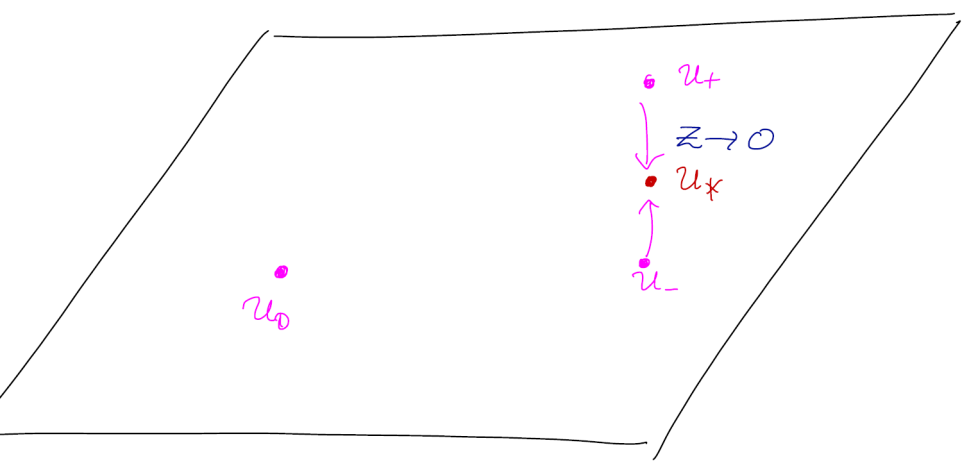 u₊
z → 0
u_*
u₋
u₀